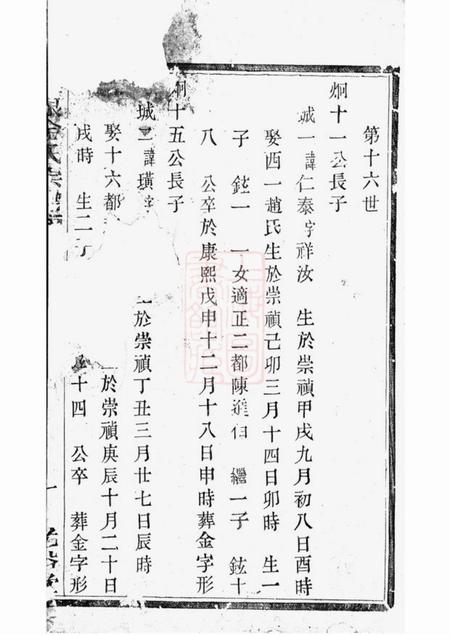 第十六世
炯十一公長子
城一諱仁泰字祥汝 生於崇禎甲戌九月初八日酉時
娶酉一趙氏生於崇禎己卯三月十四日卯時 生一
子 鉉一 一女適正二都陳 繼一子 鉉十
八 公卒於康熙戊申十二月十八日申時葬金字形
炯十五公長子
城二諱璜字 於崇禎丁丑三月廿七日辰時
娶十六都 於崇禎庚辰十月二十日
戌時 生二 十四 公卒 葬金字形